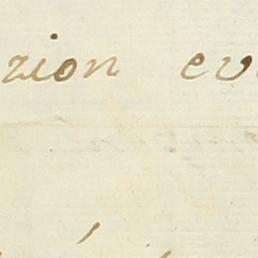 zion ev